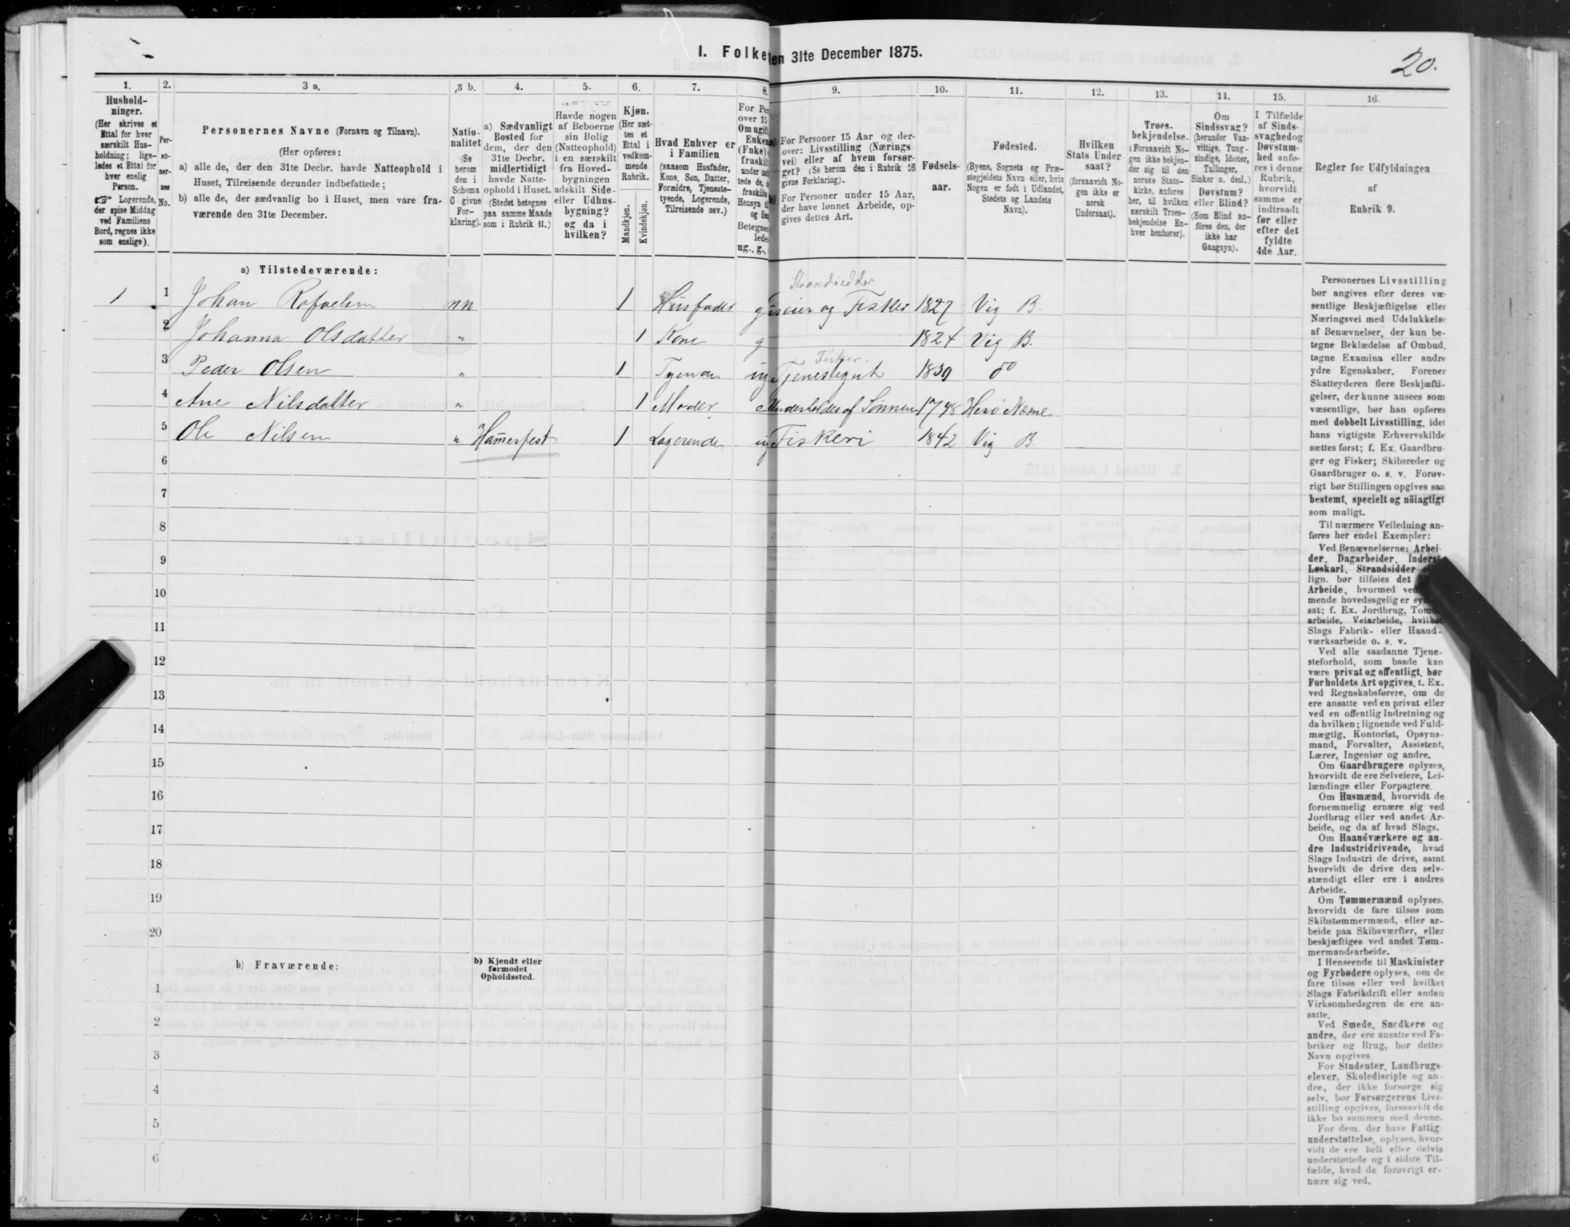 I. Folke en 31te December 1875.
20.
1.
2.
3 a.
3 b.
4.
5.
6.
7.
8.
9.
10.
11.
12.
13.
14.
15.
16.
Hushold-
ninger.
(Her skrives et
Ettal for hver
særskilt Hus-
holdning; lige-
ledes et Ettal for
hver enslig
Person.
☞ Logerende,
der spise Middag
ved Familiens
Bord, regnes ikke
som enslige).
Per-
so-
ner-
nes
No.
Personernes Navne (Fornavn og Tilnavn).
(Her opføres:
a) alle de, der den 31te Decbr. havde Natteophold i
Huset, Tilreisende derunder indbefattede;
b) alle de, der sædvanlig bo i Huset, men vare fra-
værende den 31te December.
Natio-
nalitet
(Se
herom
den i
Schema
C givne
For-
klaring).
a) Sædvanligt
Bosted for
dem, der den
31te Decbr.
midlertidigt
havde Natte-
ophold i Huset.
(Stedet betegnes
paa samme Maade
som i Rubrik 11.)
Havde nogen
af Beboerne
sin Bolig
(Natteophold)
i en særskilt
fra Hoved-
bygningen
adskilt Side-
eller Udhus-
bygning?
og da i
hvilken?
Kjøn.
(Her sæt-
tes et
Ettal i
vedkom-
mende
Rubrik.
Mandkjøn.
Kvindekjøn.
Hvad Enhver er
i Familien
(saasom Husfader,
Kone, Søn, Datter,
Forældre, Tjeneste-
tyende, Logerende,
Tilreisende osv.)
For Pe
over 15
Om ugift
Enke
(Enke)
fraskil
For Personer 15 Aar og der-
over: Livsstilling (Nærings-
vei) eller af hvem forsør-
get? (Se herom den i Rubrik 16
givne Forklaring).
For Personer under 15 Aar,
der have lønnet Arbeide, op-
gives dettes Art.
Fødsels-
aar.
Fødested.
(Byens, Sognets og Præ-
stegjeldets Navn eller, hvis
Nogen er født i Udlandet,
Stedets og Landets
Navn).
Hvilken
Stats Under-
saat?
(forsaavidt No-
gen ikke er
norsk
Undersaat).
Troes-
bekjendelse.
(Forsaavidt No-
gen ikke bekjen-
der sig til den
norske Stats-
kirke, anføres
her, til hvilken
særskilt Troes-
bekjendelse En-
hver henhører).
Om
Sindssvag?
(herunder Van-
vittige, Tung-
sindige, Idioter,
Tullinger,
Sinker o. desl.)
Døvstum?
eller Blind?
(Som Blind an-
føres den, der
ikke har
Gangsyn).
I Tilfælde
af Sinds-
svaghed og
Døvstum-
hed anfø-
res i denne
Rubrik,
hvorvidt
samme er
indtraadt
før eller
efter det
fyldte
4de Aar.
Regler for Udfyldningen
af
Rubrik 9.
a) Tilstedeværende:
Strandsidder
1 1 Johan Rafaelsen nn 1 Husfader g Huseier og Fisker 1827 Vig B.
2 Johanna Olsdatter " 1 Kone g 1824 Vig B.
Fisker.
3 Peder Olsen " 1 Tyende ug Tjenestegut 1859 do
4 Ane Nilsdatter " 1 Moder e Underholdes af Sønnen 1798 Herø Næsne
5 Ole Nilsen " Hamerfest 1 Logerende ug Fiskeri 1842 Vig B.
6
7
8
9
10
11
12
13
14
15
16
17
18
19
20
b) Fraværende:
b) Kjendt eller
formodet
Opholdssted.
1
2
3
4
5
6
Personernes Livsstilling
bør angives efter deres væ-
sentlige Beskjæftigelse eller
Næringsvei med Udelukkelse
af Benævnelser, der kun be-
tegne Beklædelse af Ombud,
tagne Examina eller andre
ydre Egenskaber. Forener
Skatteyderen flere Beskjæfti-
gelser, der kunne ansees som
væsentlige, bør han opføres
med dobbelt Livsstilling, idet
hans vigtigste Erhvervskilde
sættes først; f. Ex. Gaardbru-
ger og Fisker; Skibsreder og
Gaardbruger o. s. v. Forøv-
rigt bør Stillingen opgives saa
bestemt, specielt og nöiagtigt
som muligt.
Til nærmere Veiledning an-
føres her endel Exempler:
Ved Benævnelserne: Arbei-
der, Dagarbeider, Inderst,
Løskarl, Strandsidder
lign. bør tilføies det
Arbeide, hvormed ved
mende hovedsagelig er
sat; f. Ex. Jordbrug, Tom
arbeide, Veiarbeide, hvilket
Slags Fabrik- eller Haand-
værksarbeide o. s. v.
Ved alle saadanne Tjene-
steforhold, som baade kan
være privat og offentligt, bør
Forholdets Art opgives, t. Ex.
ved Regnskabsførere, om de
ere ansatte ved en privat eller
ved en offentlig Indretning og
da hvilken; lignende ved Fuld-
mægtig, Kontorist, Opsyns-
mand, Forvalter, Assistent,
Lærer, Ingeniør og andre.
Om Gaardbrugere oplyses,
hvorvidt de ere Selveiere, Lei-
lændinge eller Forpagtere.
Om Husmænd, hvorvidt de
fornemmelig ernære sig ved
Jordbrug eller ved andet Ar-
beide, og da af hvad Slags.
Om Haandværkere og an-
dre Industridrivende, hvad
Slags Industri de drive, samt
hvorvidt de drive den selv-
stændigt eller ere i andres
Arbeide.
Om Tømmermænd oplyses,
hvorvidt de fare tilsøs som
Skibstømmermænd, eller ar-
beide paa Skibsværfter, eller
beskjæftiges ved andet Tøm-
mermandsarbeide.
I Henseende til Maskinister
og Fyrbødere oplyses, om de
fare tilsøs eller ved hvilket
Slags Fabrikdrift eller anden
Virksomhedsgren de ere an-
satte.
Ved Smede, Snedkere og
andre, der ere ansatte ved Fa-
briker og Brug, bør dettes
Navn opgives.
For Studenter, Landbrugs-
elever, Skoledisciple og an-
dre, der ikke forsørge sig
selv, bør Forsørgerens Livs-
stilling opgives, forsaavidt de
ikke bo sammen med denne.
For dem, der have Fattig-
understøttelse, oplyses, hvor-
vidt de ere helt eller delvis
understøttede og i sidste Til-
fælde, hvad de forøvrigt er-
nære sig ved.